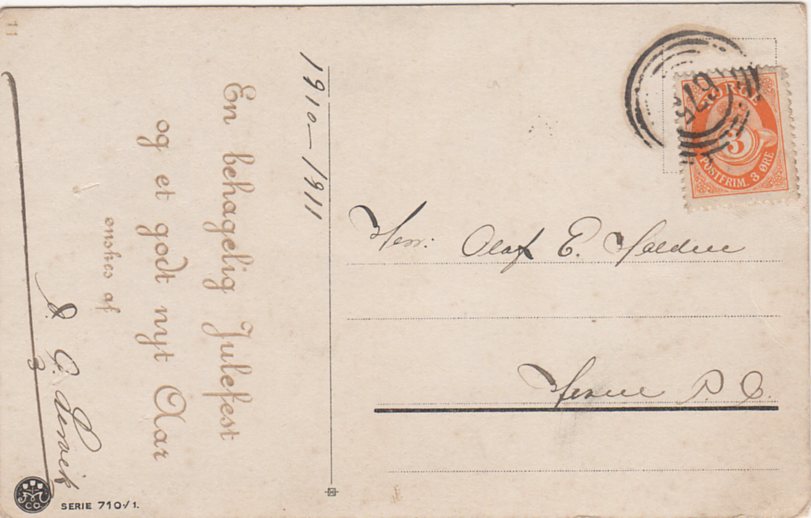 11
En behagelig Julefest
og et godt nyt Aar
ønskes af
1910-1911
NORGE
3
POSTFRIM. 3 ØRE
379
Herr: Olaf E.
P. O.
M
CO.
SERIE 710/1.